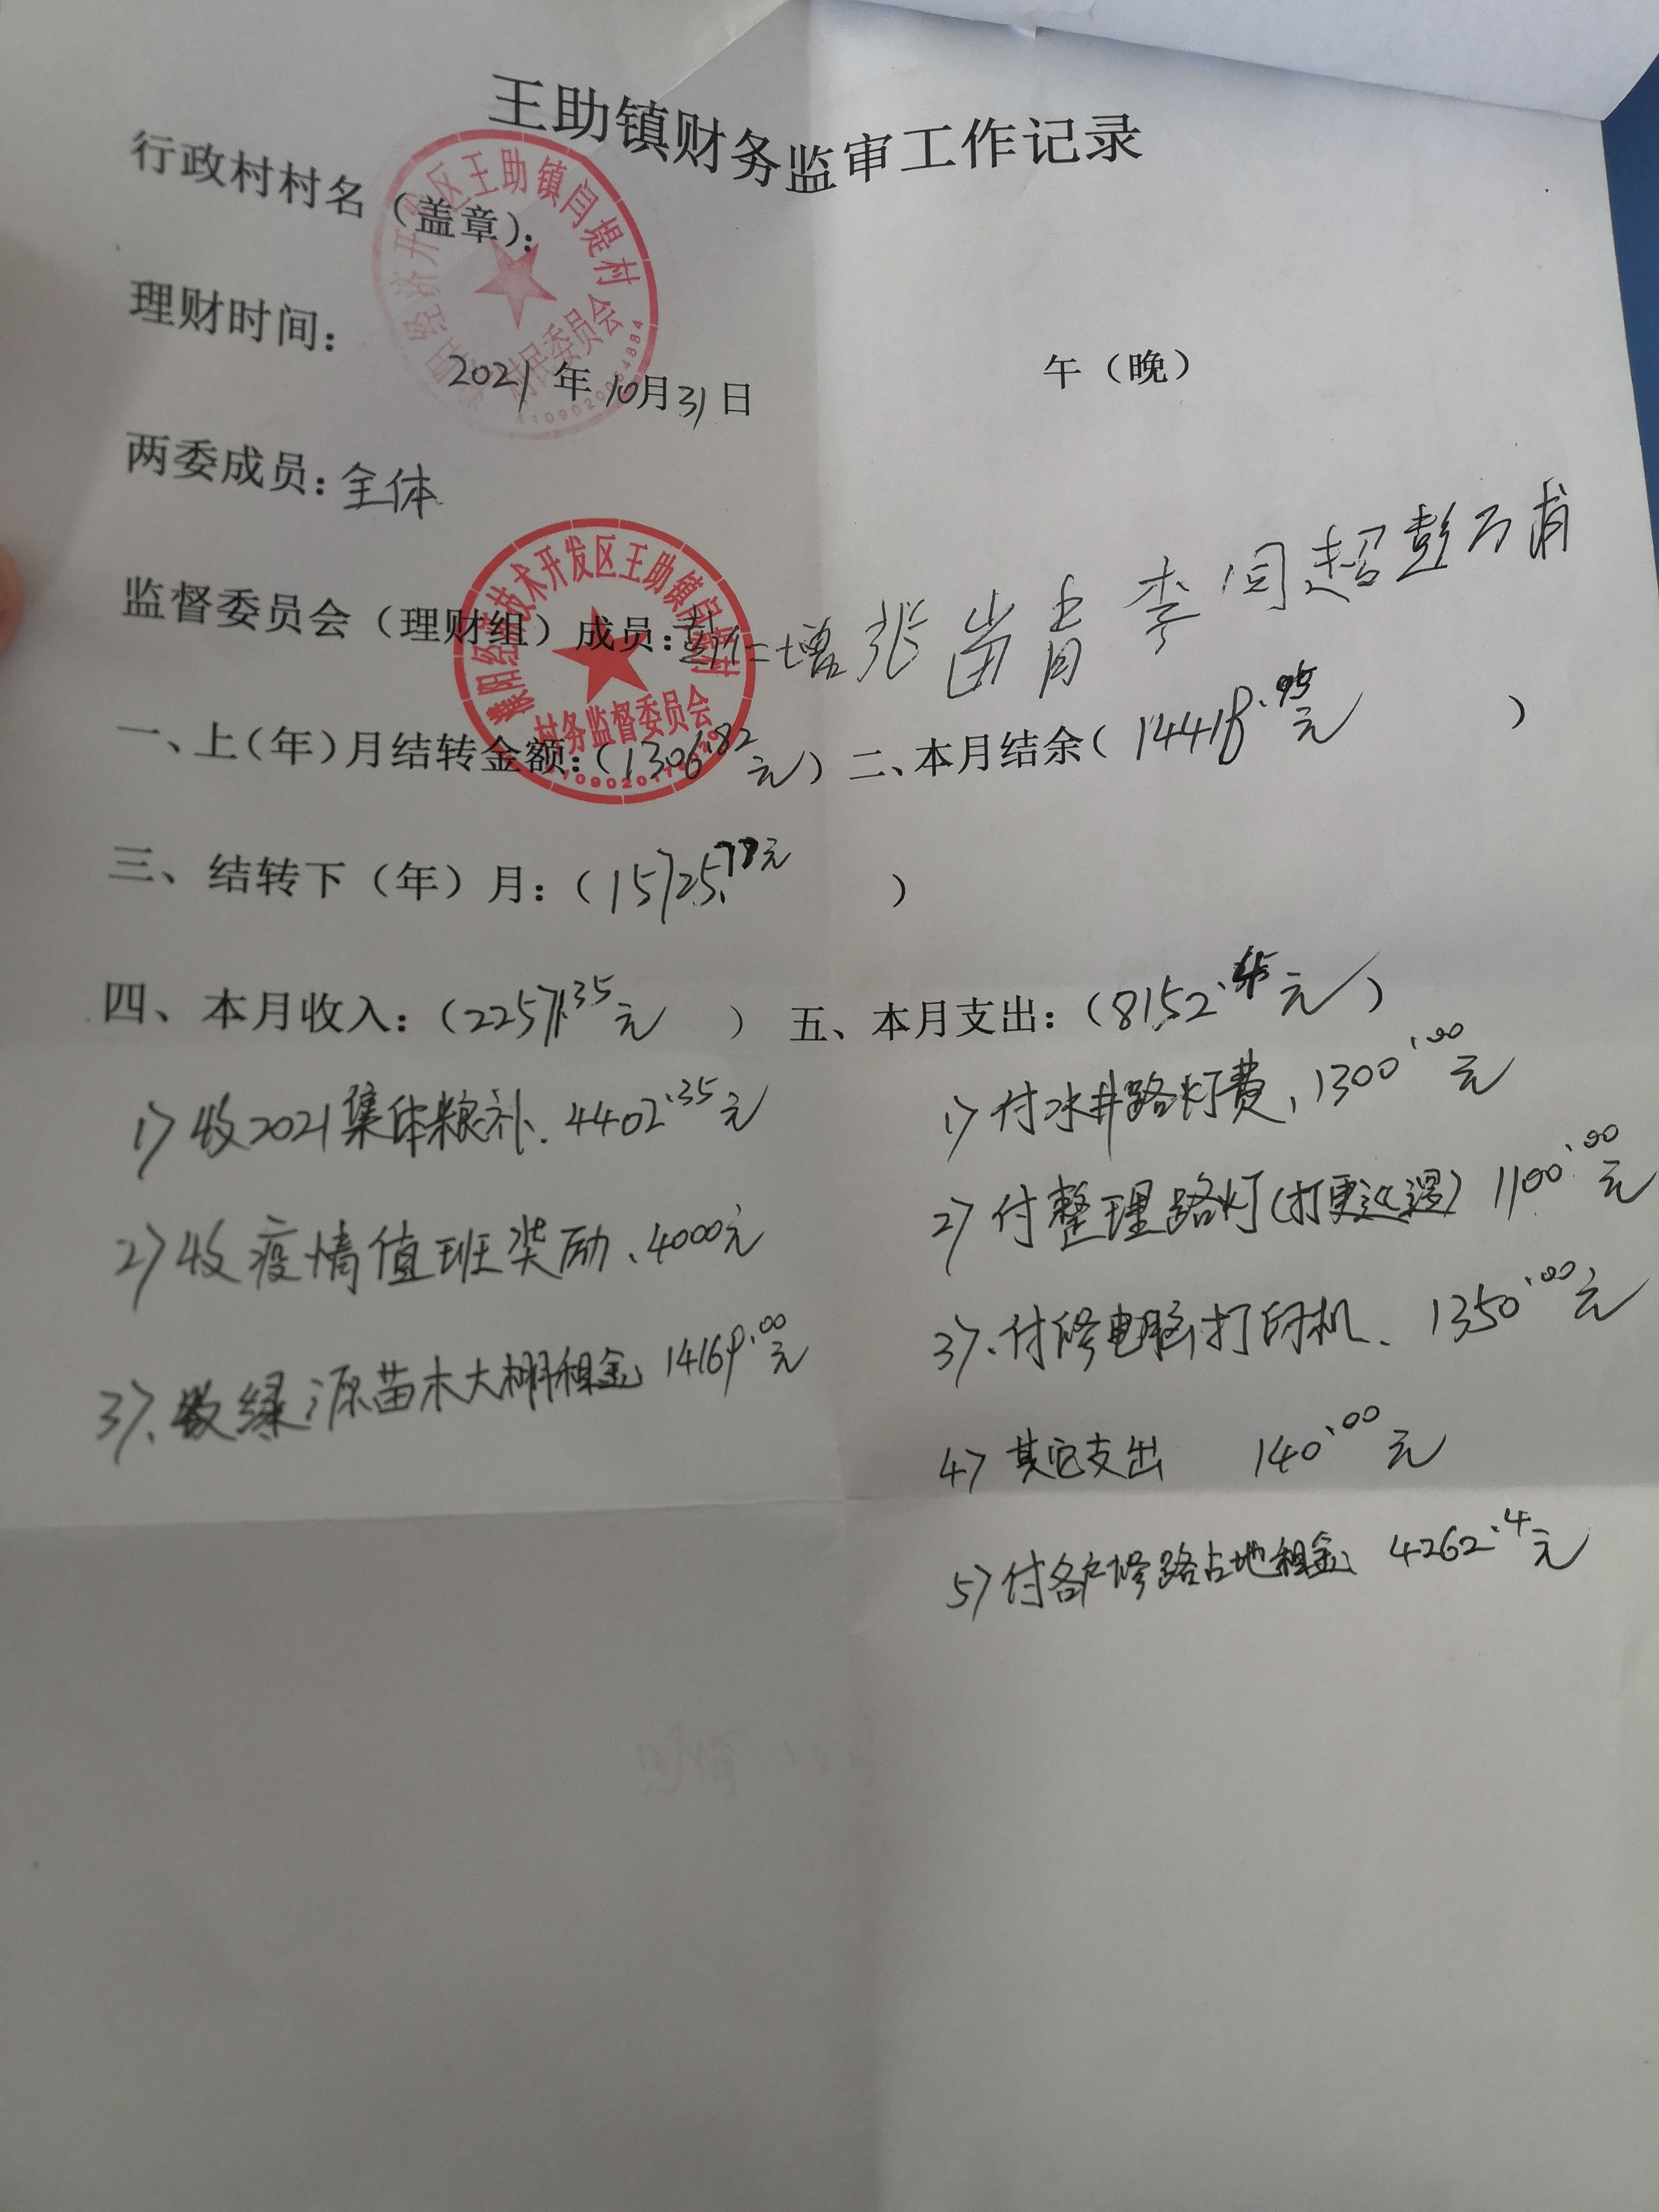 王助镇财务监审工作记录
行政村村名(盖章):
区王助镇闫堤村
村民委员会
理财时间:
2021年10月31日 午(晚)
两委成员:全体
濮阳经济技术开发区王助镇闫堤村
村务监督委员会
监督委员会(理财组)成员:彭仁增 张苗青 李闫超 彭万甫
一、上(年)月结转金额:(1306.82元) 二、本月结余(14418.95元)
三、结转下(年)月:(15725.77元)
四、本月收入:(22571.35元) 五、本月支出:(8152.4元)
1)收2021集体粮补.4402.35元
1)付水井路灯费,1300.00元
2)收疫情值班奖励、4000元
2)付整理路灯(打更巡逻)1100.00元
3)、收绿源苗木大棚租金 14169.00元
3)、付修电脑打印机、1350.00元
4)其它支出 140.00元
5)付各户修路占地租金 4262.4元